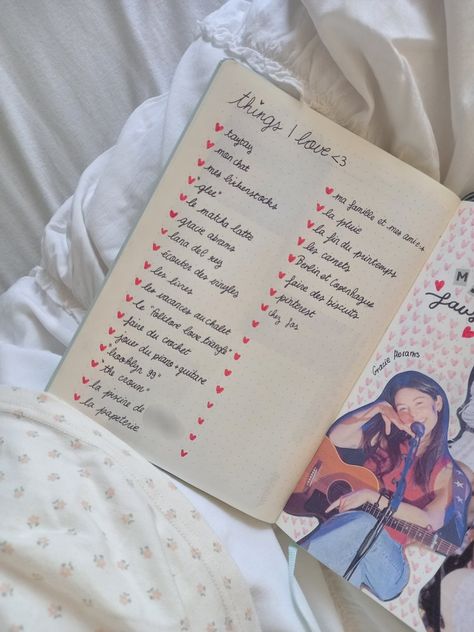 things I love <3
taytay
mon chat
mes birkenstocks
"glee"
le matcha latte
gracie abrams
lana del rey
écouter des vinyles
les livres
les vacances au chalet
le "folklore love triangle"
faire du crochet
jouer du piano + guitare
"brooklyn 99"
"the crown"
la piscine de
la papeterie
ma famille et mes amies
la pluie
la fin du printemps
les carnets
Berlin et Copenhague
faire des biscuits
pinterest
chez Jos
Gracie Abrams